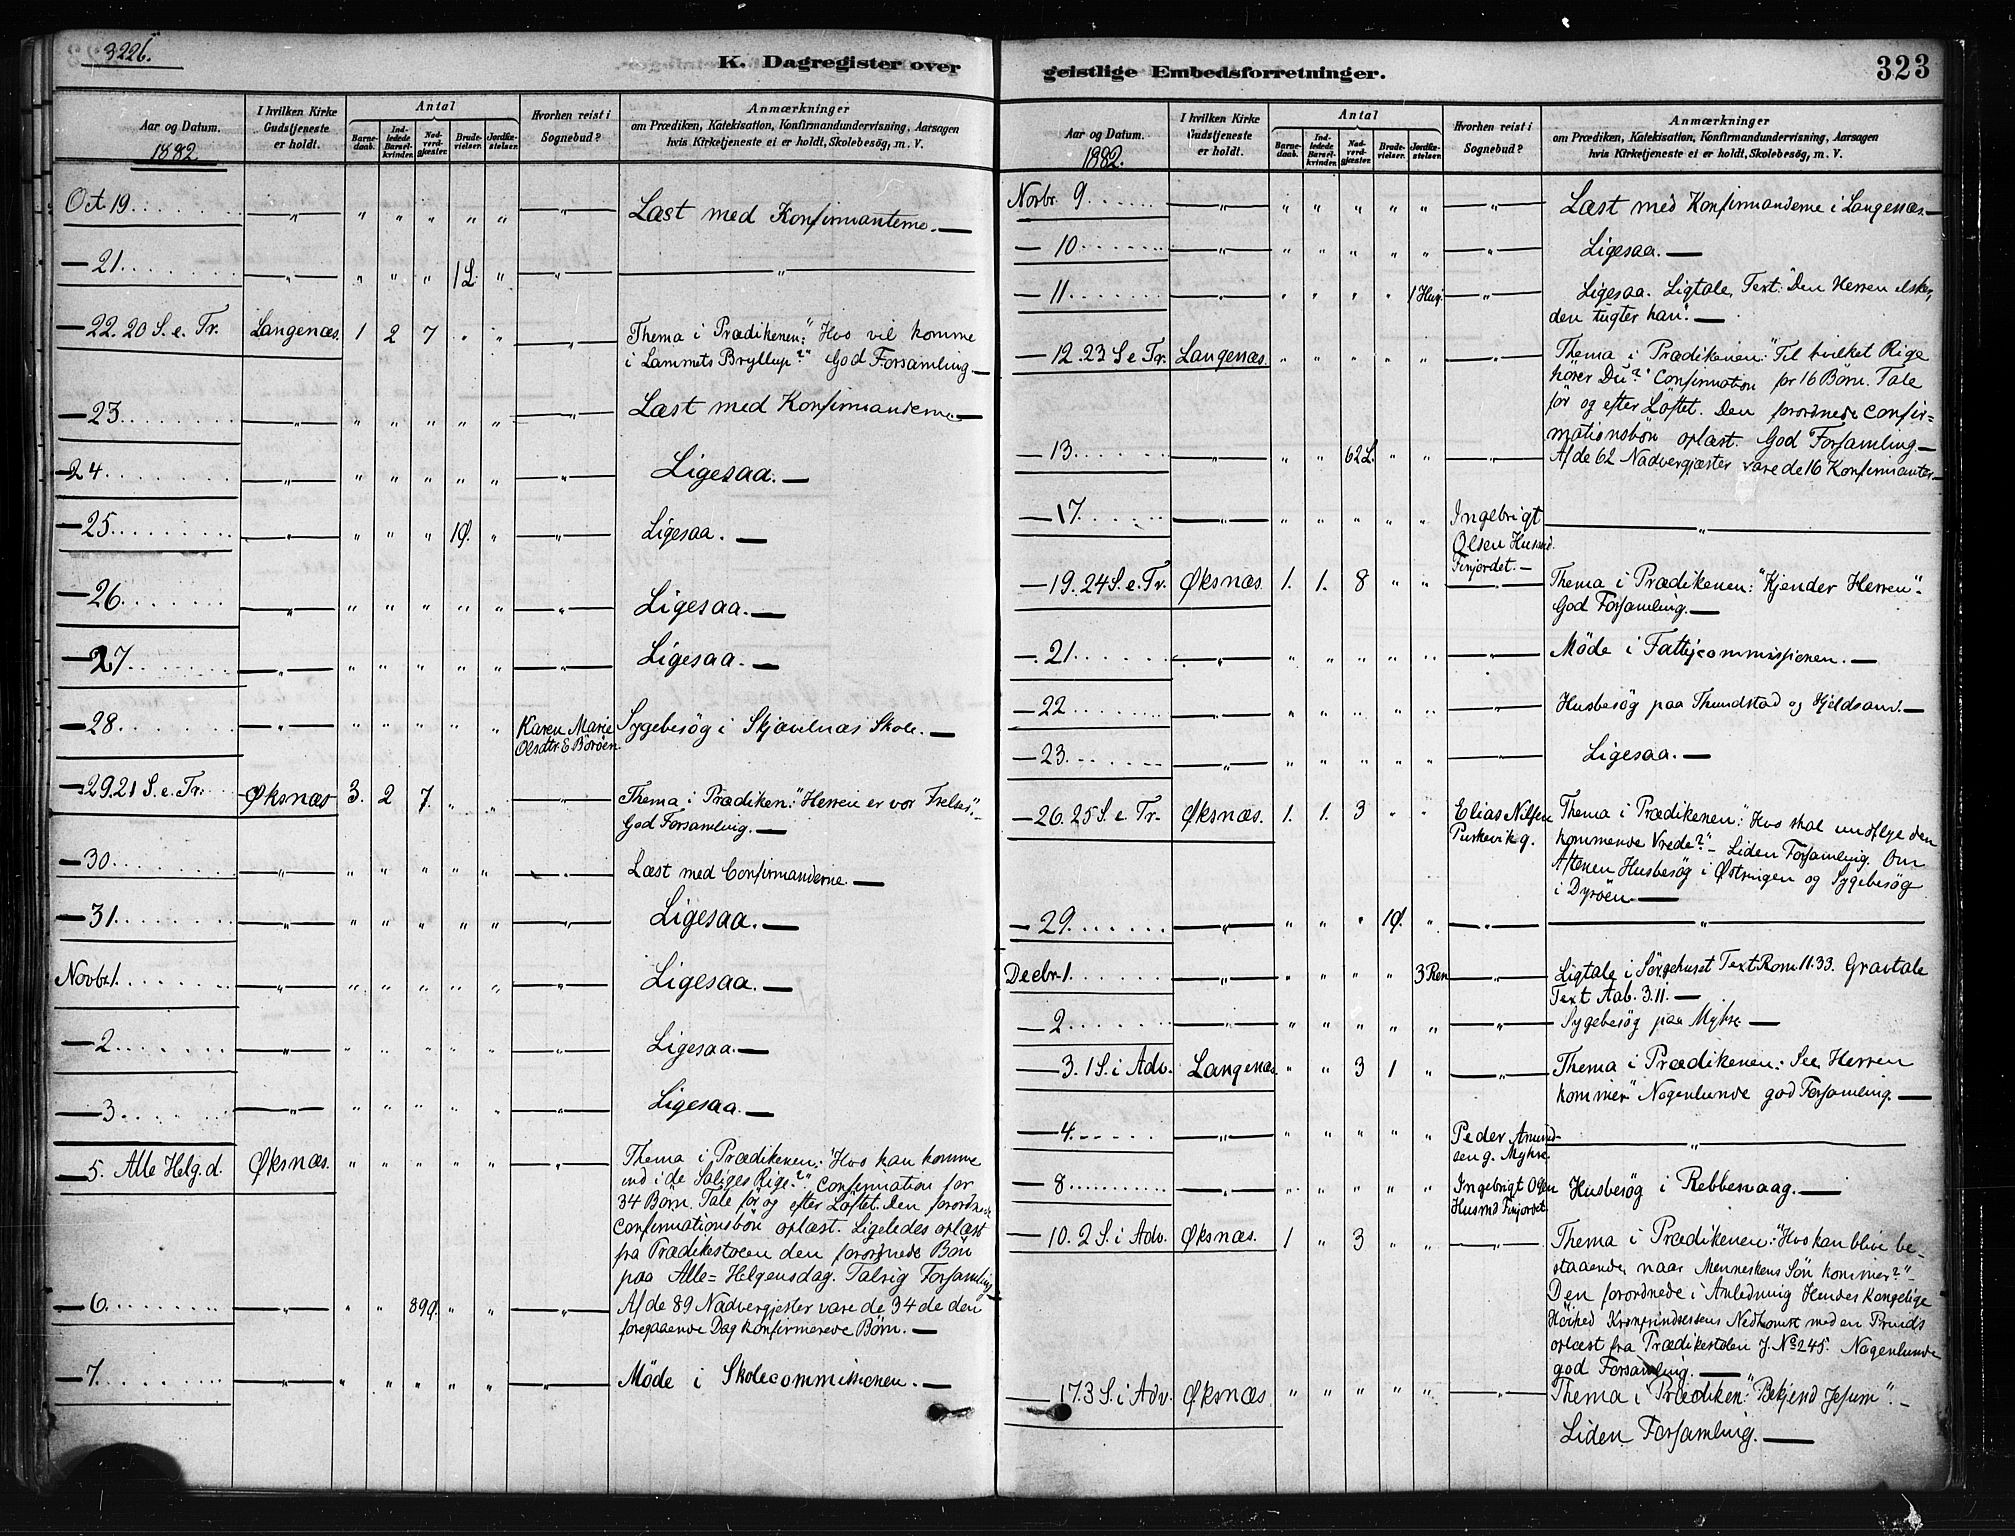 322b.
K. Dagregister over
Aar og Datum.
1882
I hvilken Kirke Gudstjeneste er holdt.
Antal
Barnedaab.
Indledede Barselkvinder.
Nadverdgjæster.
Brudevielser.
Jordfæstelser.
Hvorhen reist i Sognebud?
Anmærkninger
om Prædiken, Katekisation, Konfirmandundervisning, Aarsagen
hvis Kirketjeneste ei er holdt, Skolebesøg, m. V.
Oct. 19. — „ — „ „ „ „ „ — „ — Læst med Konfirmanterne. —
— 21. — „ — „ „ „ 1 L. „ — „ — „ —
— 22. 20 S. e. Tr. Langenæs. 1 2 7 „ „ — „ — Thema i Prædikenen: "Hvo vil komme
i Lammets Bryllup?" God Forsamling —
— 23 — „ — „ „ „ „ „ — „ — Læst med Konfirmanderne. —
— 24. — „ — „ „ „ „ „ — „ — Ligesaa. —
— 25. — „ — „ „ „ 1Ø. „ — „ — Ligesaa. —
— 26. — „ — „ „ „ „ „ — „ — Ligesaa. —
— 27. — „ — „ „ „ „ „ — „ — Ligesaa. —
— 28 — „ — „ „ „ „ „ Karen Marie Sygebesøg i Skjævelnæs Skole. —
Olsdtr. E Börøen
— 29. 21 S. e. Tr. Øksnæs 3. 2 7. „ „ — „ — Thema i Prædiken: "Herren er vor Frelse".
God Forsamling. —
— 30. — „ — „ „ „ „ „ — „ — Læst med Confirmanderne. —
— 31. — „ — „ „ „ „ „ — „ — Ligesaa. —
Novbr. 1. — „ — „ „ „ „ „ — „ — Ligesaa. —
— 2 — „ — „ „ „ „ „ — „ — Ligesaa. —
— 3. — „ — „ „ „ „ „ — „ — Ligesaa. —
— 5. Alle Helg. d. Øksnæs. „ „ „ „ „ — „ — Thema i Prædikenen: "Hvo kan komme
ind i de Saliges Rige?" Confirmation for
34 Börn. Tale för og efter Löftet. Den forordnede
Confirmationsbön oplæst. Ligeledes oplæst
fra Prædikestolen den forordnede Bön
paa Alle=Helgensdag. Talrig Forsamling
— 6. — „ — „ „ 89Ø. „ „ — „ — Af de 89 Nadvergjester vare de 34 de den
foregaaende Dag konfirmerede Börn. —
— 7. — „ — „ „ „ „ „ — „ — Möde i Skolecommissionen. —
geistlige Embedsforretninger.
323
Aar og Datum.
1882.
I hvilken Kirke Gudstjeneste er holdt.
Antal
Barnedaab.
Indledede Barselkvinder.
Nadverdgjæster.
Brudevielser.
Jordfæstelser.
Hvorhen reist i Sognebud?
Anmærkninger
om Prædiken, Katekisation, Konfirmandundervisning, Aarsagen
hvis Kirketjeneste ei er holdt, Skolebesøg, m. V.
Novbr. 9. — „ — „ „ „ „ „ — „ — Læst med Konfirmanderne i Langenæs. —
— 10 — „ — „ „ „ „ „ — „ — Ligesaa. —
— 11. — „ — „ „ „ „ 1 — „ — Ligesaa. Ligtale, Text: Den Herren elsker,
den tugter han. —
— 12. 23 S e Tr. Langenæs. „ „ „ „ „ — „ — Thema i Prædikenen: "Til hvilket Rige
hører Du?" Confirmation for 16 Börn. Tale
för og efter Löftet. Den forordnede Confir=
mationsbön oplæst. God Forsamling —
— 13. — „ — „ „ 62 L. „ „ — „ — Af de 62 Nadvergjæster vare de 16 Konfirmanter —
— 17. — „ — „ „ „ „ „ Ingebrigt — „ —
Olsen Husmd.
Finjordet. —
— 19. 24 S. e. Tr. Øksnæs. 1. 1. 8 „ „ — „ — Thema i Prædikenen: "Kjender Herren".
God Forsamling. —
— 21. — „ — „ „ „ „ „ — „ — Möde i Fattigcommissionen. —
— 22 — „ — „ „ „ „ „ — „ — Husbesøg paa Thundstad og Kjeldsand. —
— 23. — „ — „ „ „ „ „ — „ — Ligesaa. —
— 26. 25 S. e Tr. Øksnæs. 1. 1. 3 „ „ Elias Nilsen Thema i Prædikenen: "Hvo skal undflye den
Purkevik g. kommende Vrede?" — Liden Forsamling. Om
Aftenen Husbesøg i Østringen og Sygebesøg
i Dyröen. —
— 29. — „ — „ „ „ 1Ø. „ — „ — „ —
Decbr. 1. — „ — „ „ „ „ 3 Ren — „ — Ligtale i Sörgehuset Text Rom. 11.33. Gravtale
Text Aab. 3.11. —
— 2. — „ — „ „ „ „ „ — „ — Sygebesøg paa Myhre —
— 3. 1 S. i Adv. Langenæs „ „ 3 1 „ — „ — Thema i Prædikenen: See Herren
kommer" Nogenlunde god Forsamling. —
— 4. — „ — „ „ „ „ „ Peder Amund- — „ —
sen g. Myhre
— 8 — „ — „ „ „ „ „ Ingebrigt Olsen Husbesøg i Rebbenaag. —
Husmd Finjordet
— 10. 2 S. i Adv. Øksnæs. 1 „ 3 „ „ — „ — Thema i Prædikenen: "Hvo kan blive be-
staaende, naar Menneskens Sön kommer?" —
Den forordnede i Anledning Hendes Kongelige
Höihed Kronprindsessens Nedkomst med en Prinds
oplæst fra Prædikestolen J. No 245. Nogenlunde
god Forsamling. —
— 17 3 S. i Adv. Øksnæs „ „ „ „ „ — „ — Thema i Prædiken: "Bekjend Jesum". —
Liden Forsamling. —